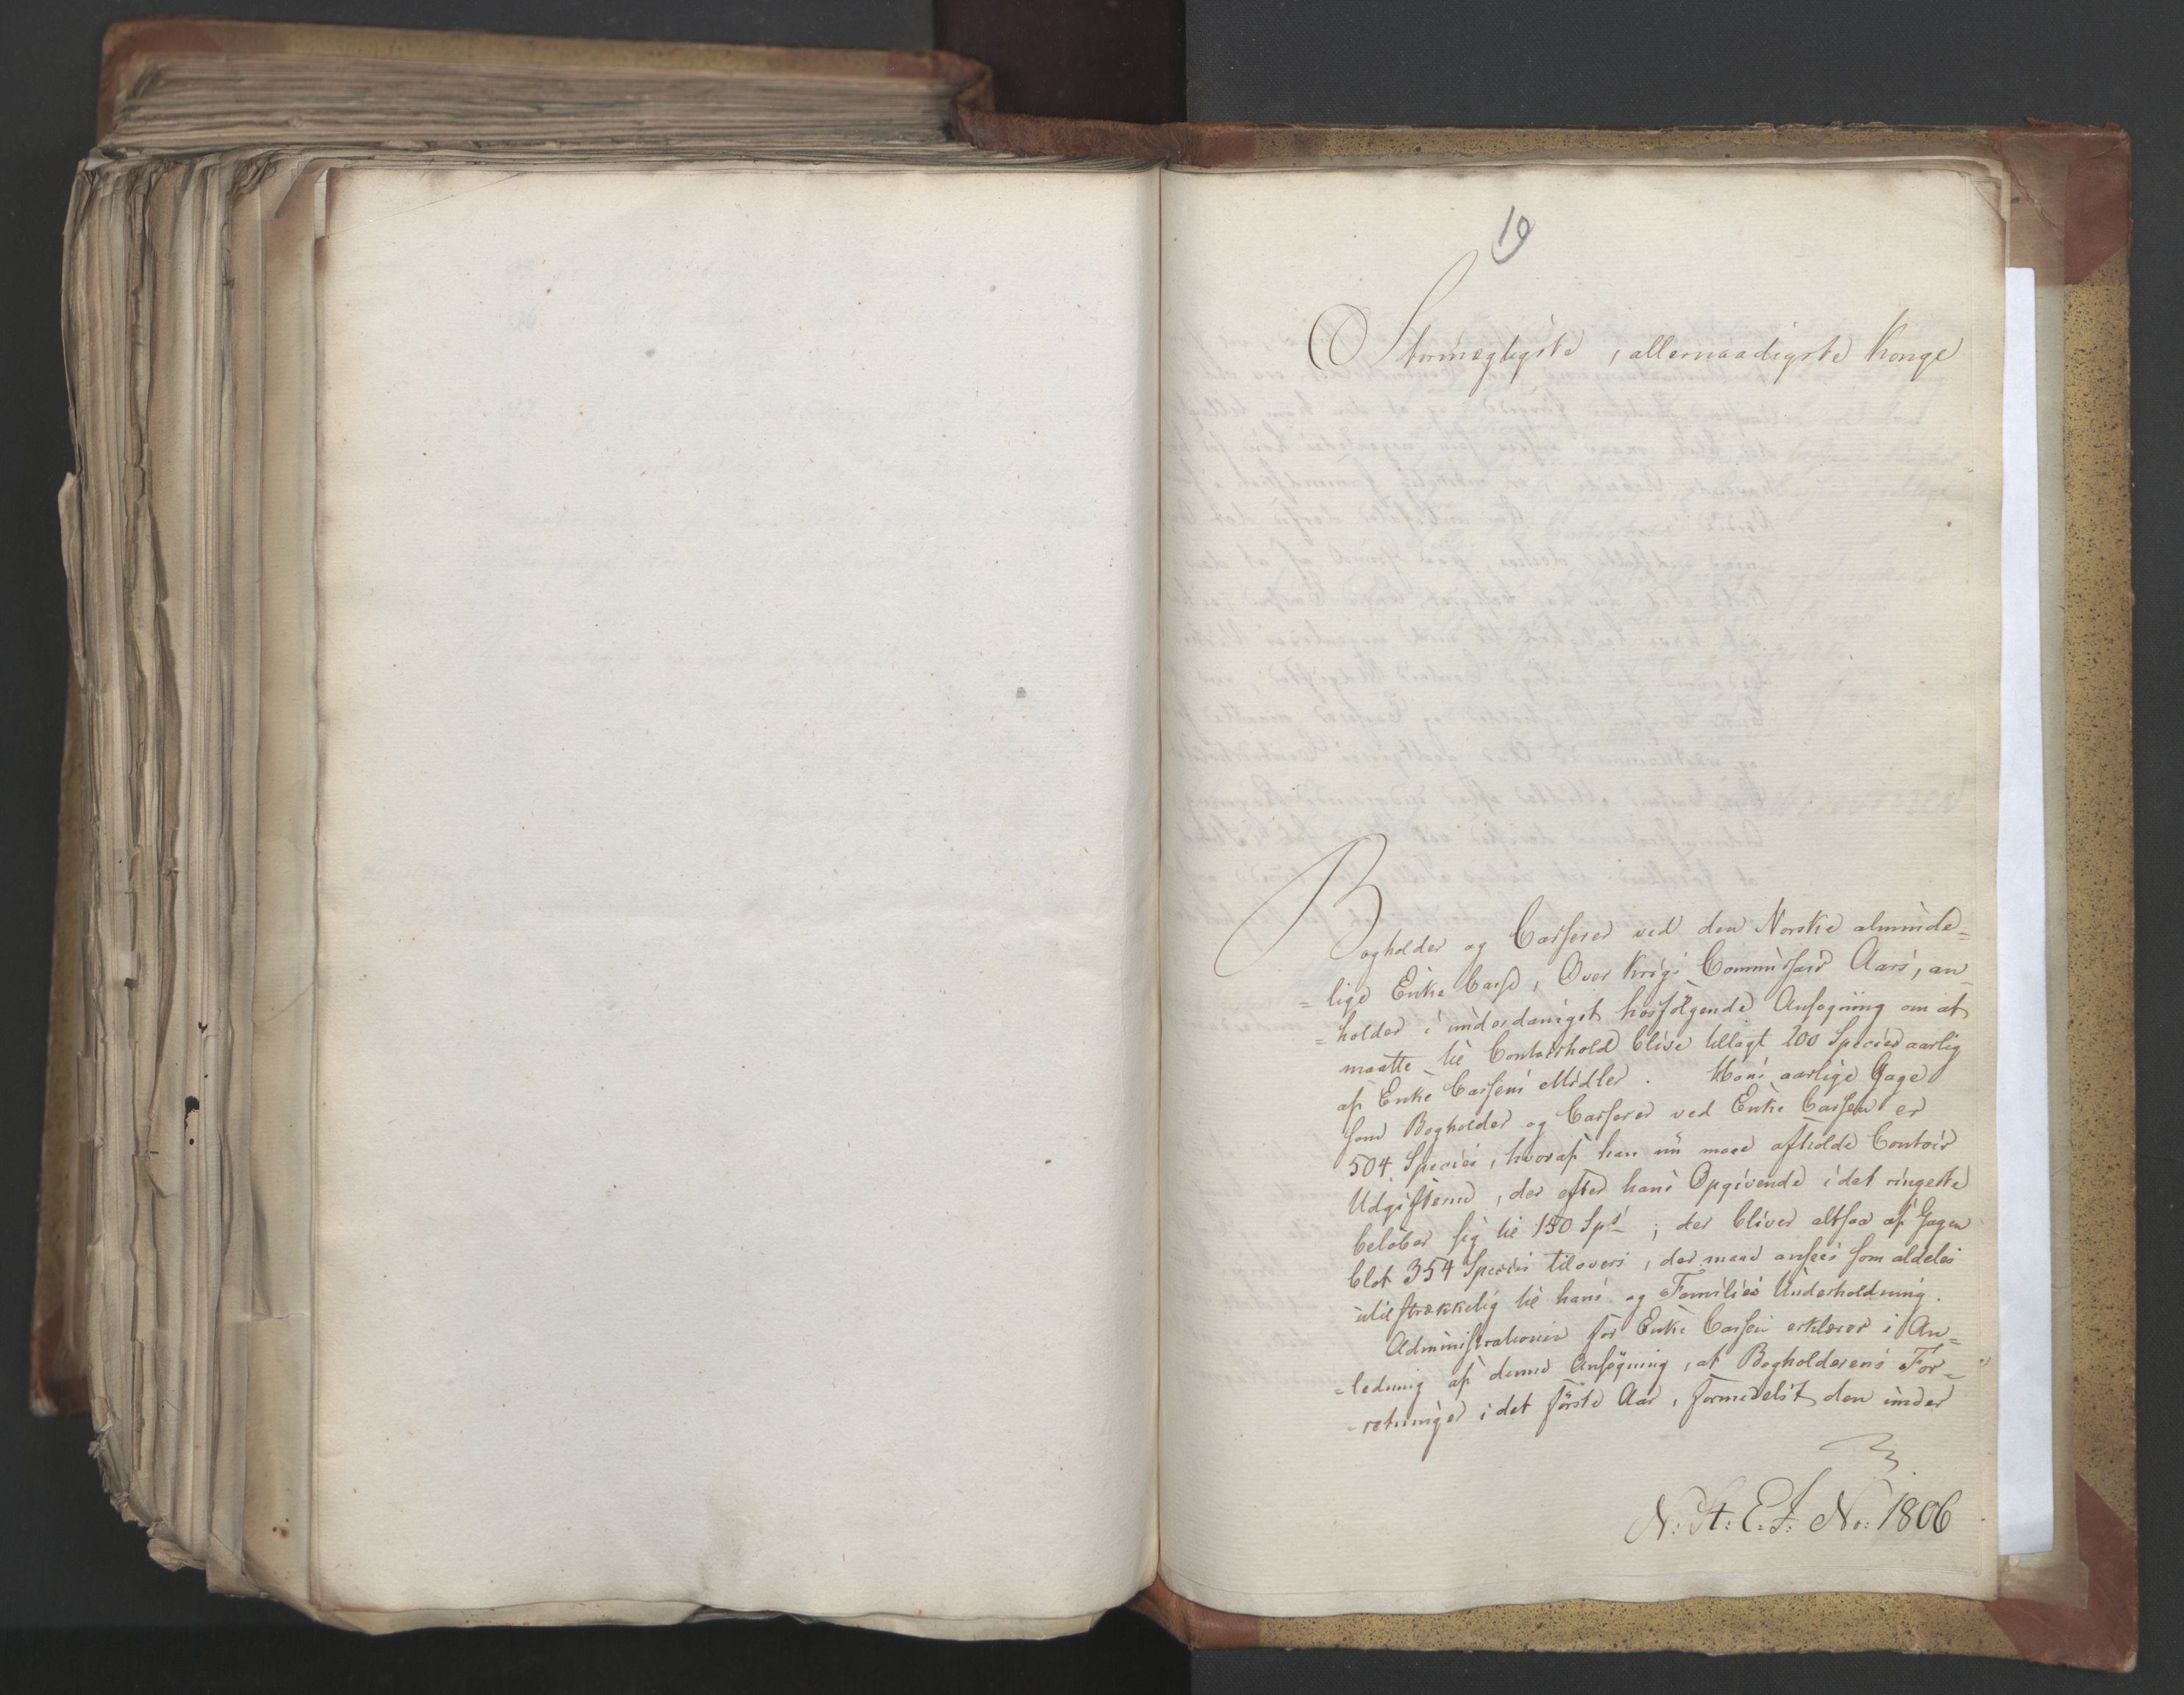 19
Stormægtigste, allernaadigste Konge
Bogholder og Casserer ved den Norske alminde=
=lige Enke Casse, Over Krigs Commissair Aars, an=
=holder i underdanigst hosfølgende Ansøgning om at
maatte til Contoirhold blive tillagt 200 Species aarlig
af Enke Cassens Midler. Hans aarlige Gage
som Bogholder og Casserer ved Enke Cassen er
504 Species, hvoraf han nu maae afholde Contoir
Udgifterne, der efter hans Opgivende i det ringeste
beløber sig til 150 Sps; der bliver altsaa af Gagen
blot 354 Species tilovers, der maae ansees som aldeles
utilstrækkelig til hans og Families Underholdning.
Administrationen for Enke Cassen erklærer i An=
=ledning af denne Ansøgning, at Bogholderens For=
=retninger i det første Aar, formedelst den under
N: St: E. J: No: 1806